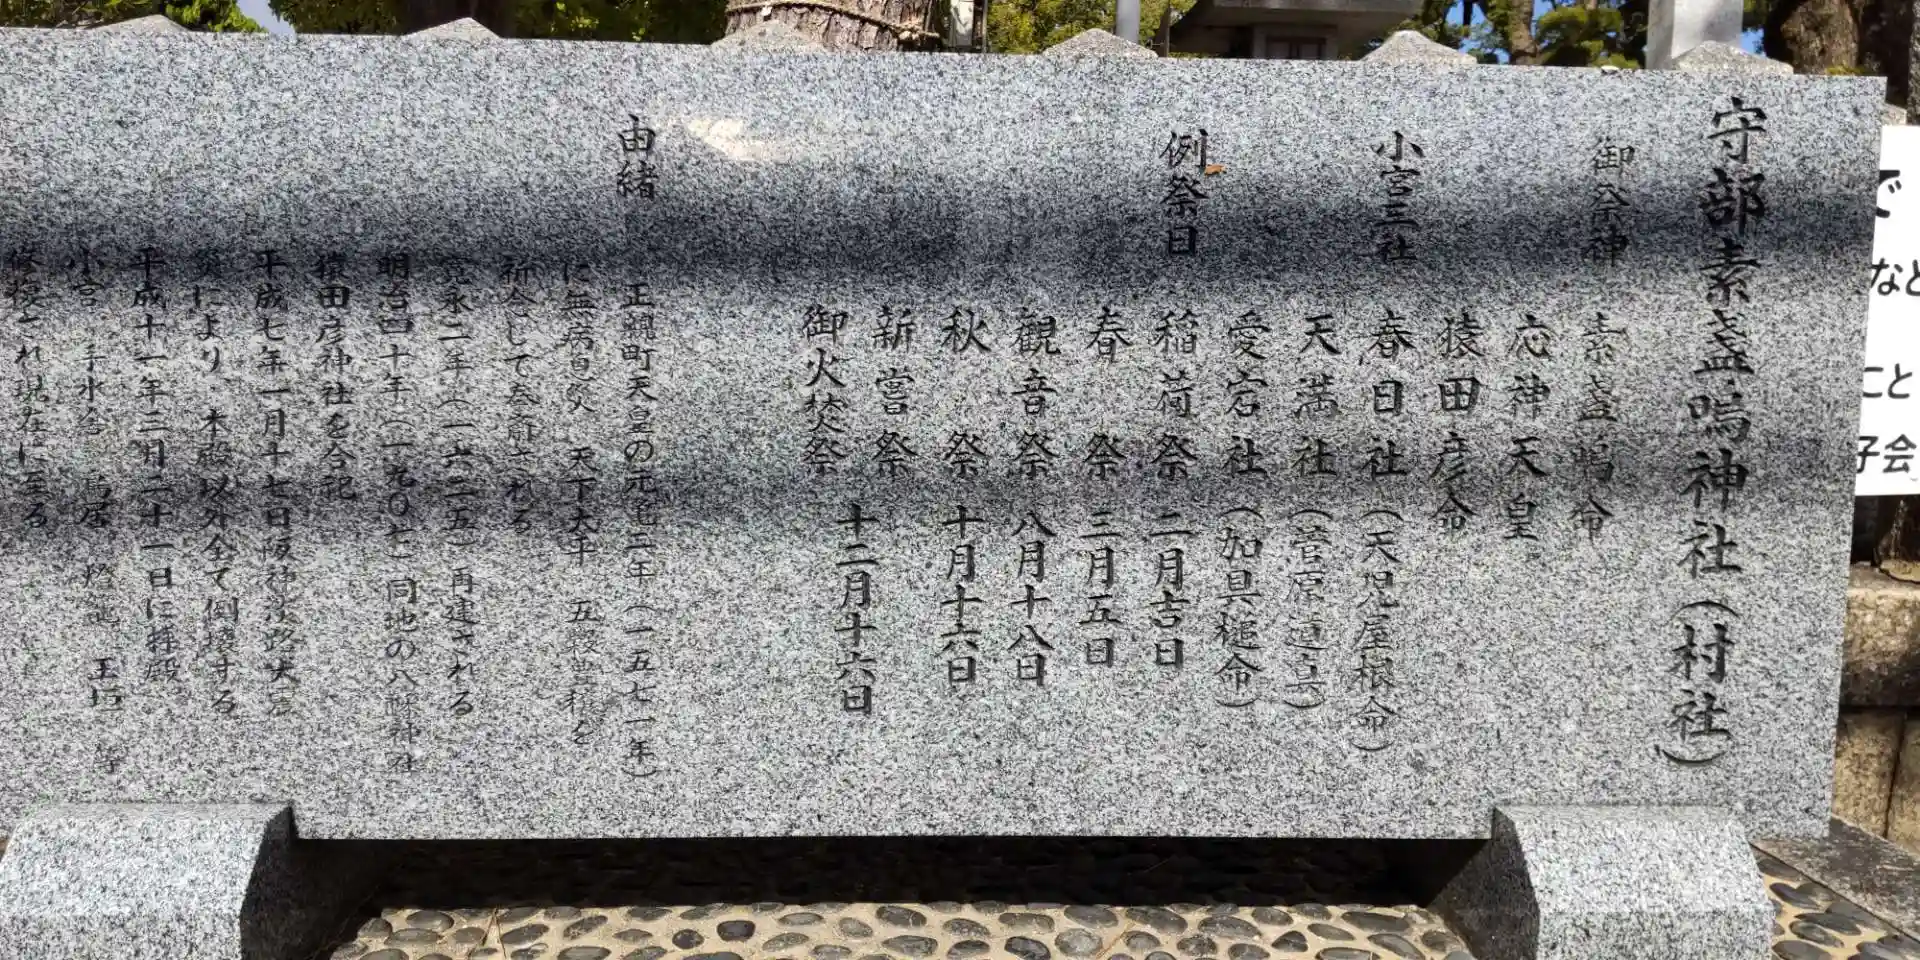 守部素盞嗚神社（村社）
御祭神
素盞嗚命
応神天皇
猿田彦命
小宮三社
春日社（天児屋根命）
天満社（菅原道真）
愛宕社（加具槌命）
例祭日
稲荷祭 二月吉日
春祭 三月五日
観音祭 八月十八日
秋祭 十月十六日
新嘗祭
御火焚祭 十二月十六日
由緒
正親町天皇の元亀二年（一五七一年）
に無病息災 天下太平 五穀豊穣を
祈念して奉斎される
寛永二年（一六二五）再建される
明治四十年（一九〇七）同地の八幡神社
猿田彦神社を合祀
平成七年一月十七日阪神淡路大震
災により、本殿以外全て倒壊する
平成十一年三月二十一日に拝殿
小宮 手水舎 鳥居 燈籠 玉垣 等
修復され現在に至る。
で
など
こと
子会